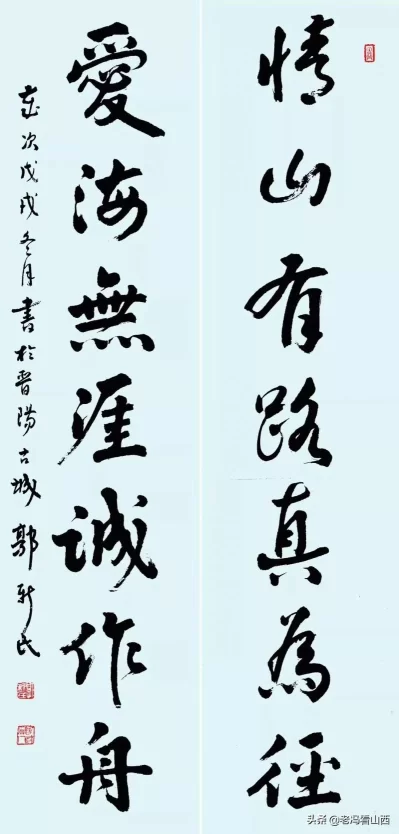 情山有路真為徑
愛海無涯誠作舟
歲次戊戌冬月書於晉陽古城郭新民
头条 @老冯看山西